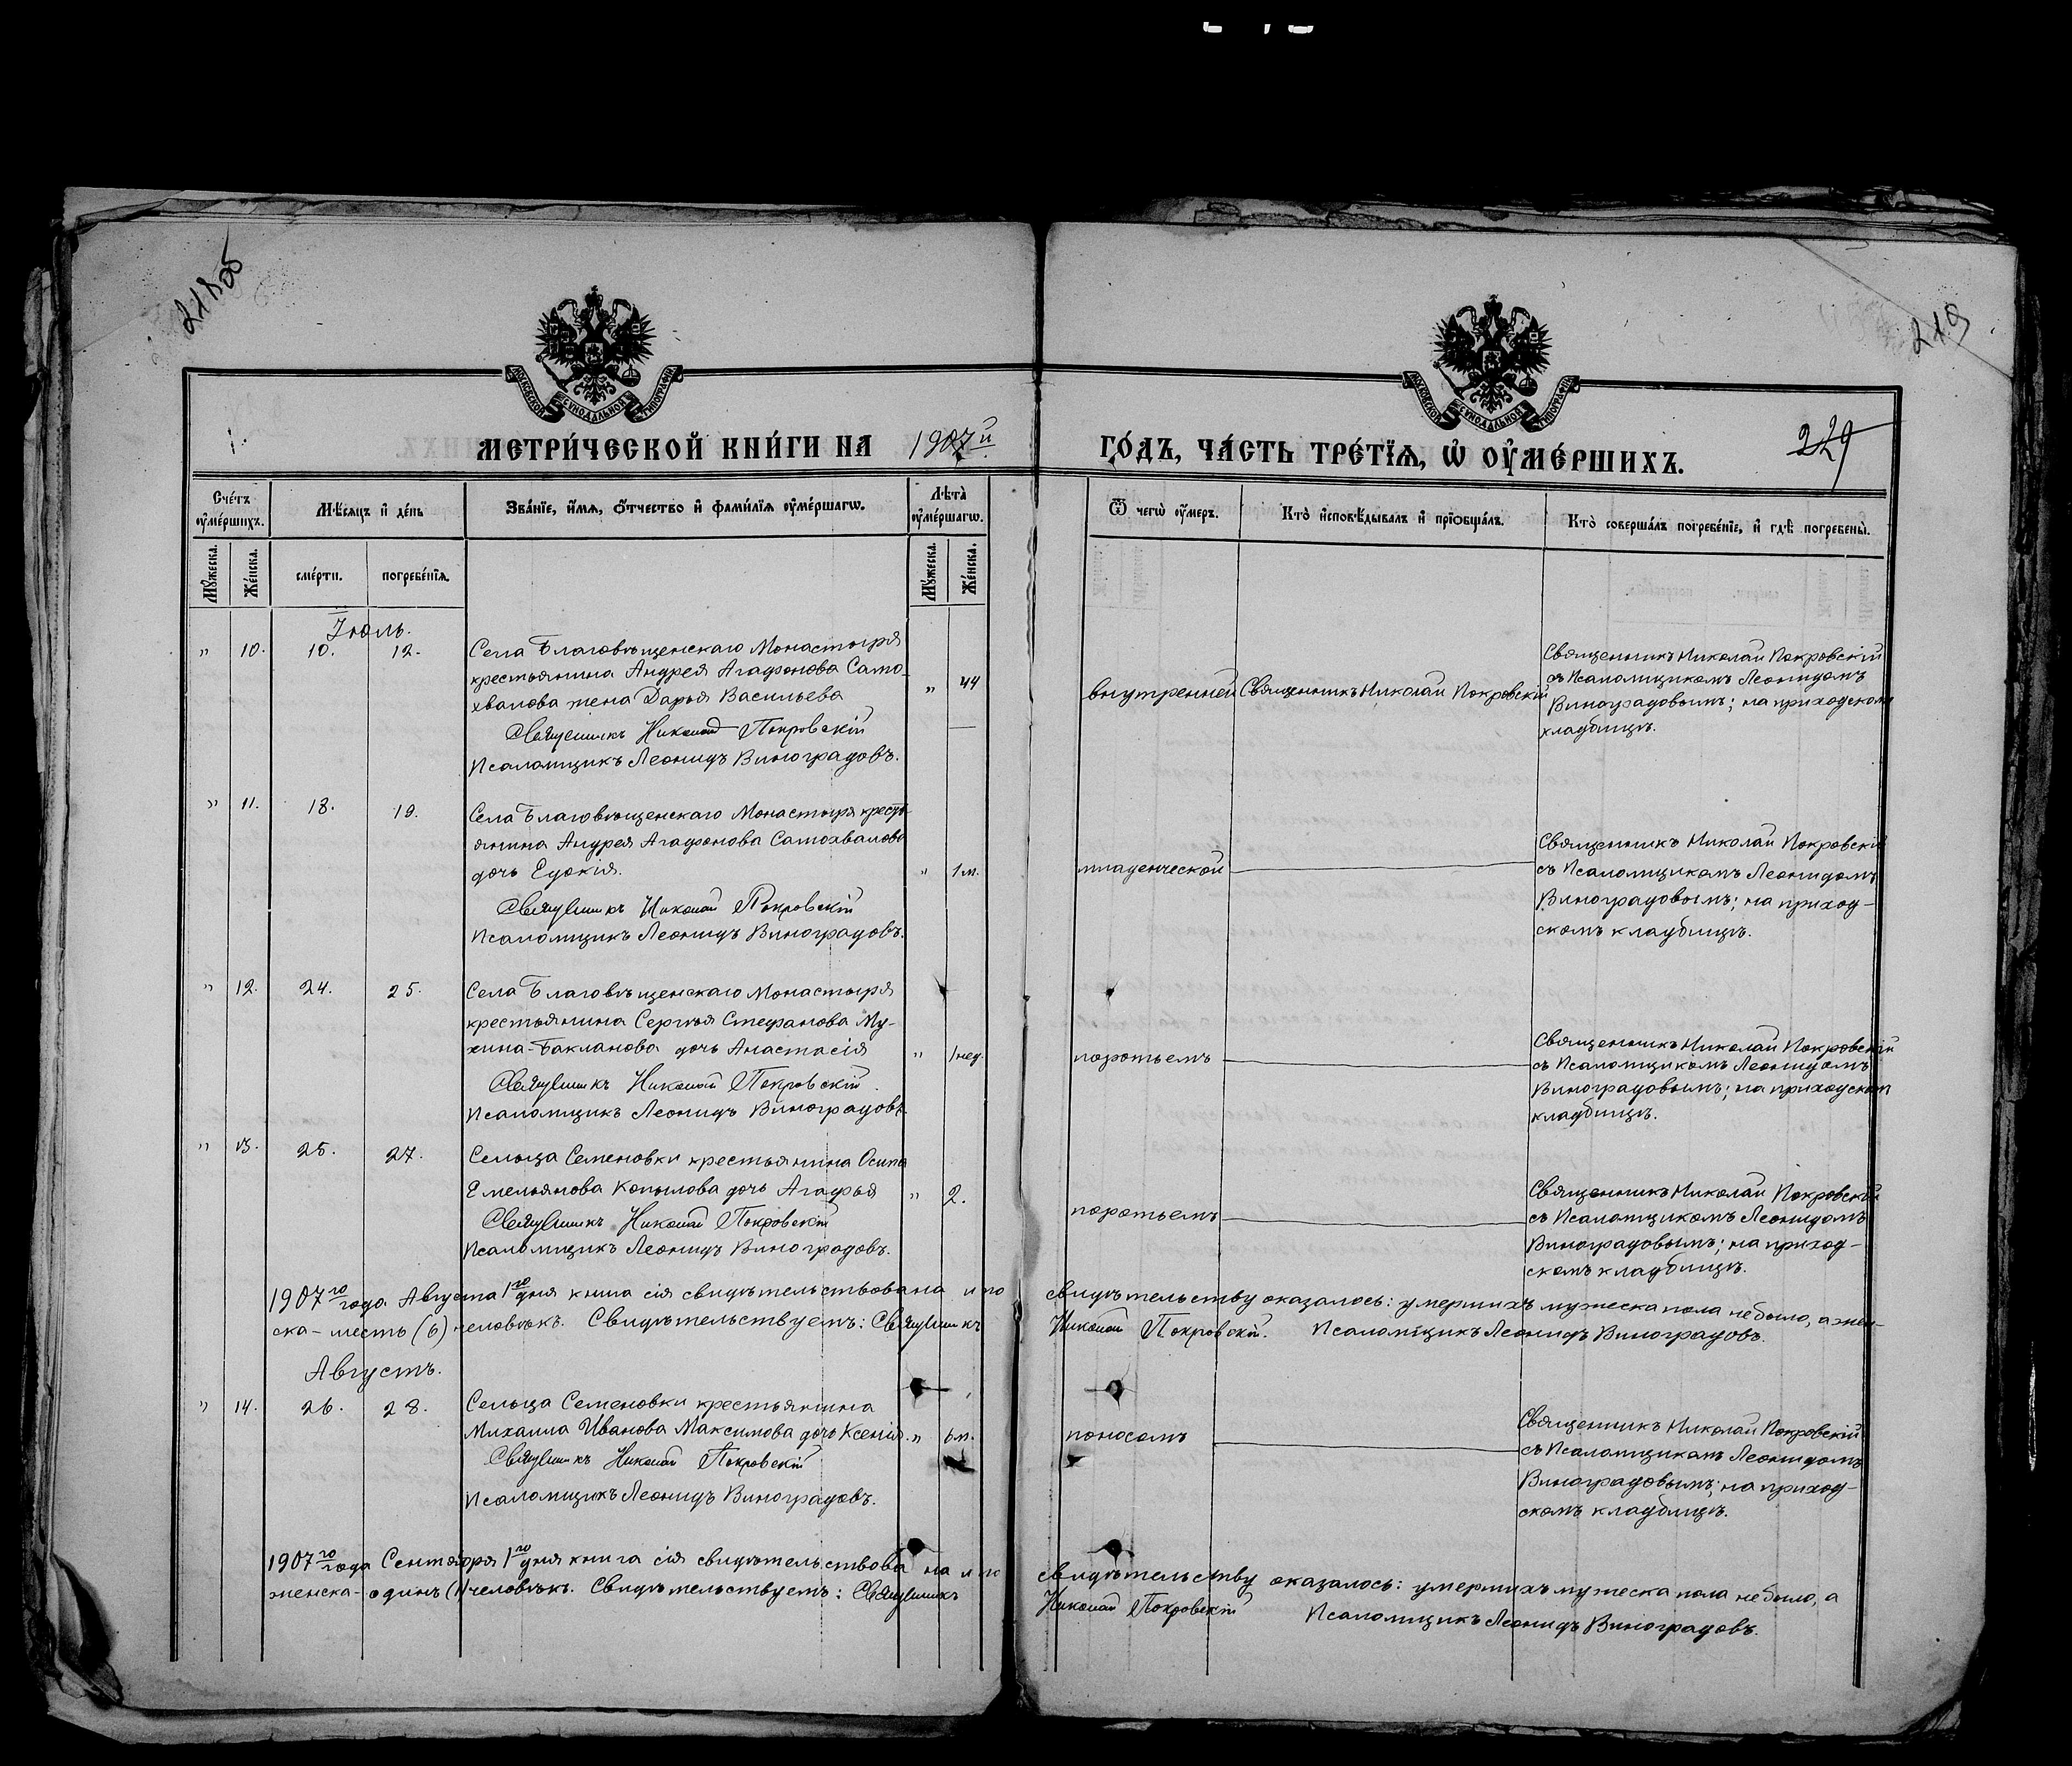 218об
219
МОСКОВСКОЙ СѴНОДАЛЬНОЙ ТИПОГРАФІИ
МОСКОВСКОЙ СѴНОДАЛЬНОЙ ТИПОГРАФІИ
МЕТРИ́ЧЕСКОЙ КНИ́ГИ НА 1907й
ГО́ДЪ, ЧА́СТЬ ТРЕ́ТЇѦ, Ѡ҆ ОУ҆МЕ́РШИХЪ.
229
Сче́тъ оу҆ме́ршихъ.
Мѣ́сяцъ и҆ де́нь
Зва́нїе, и҆́мѧ, ѻ҆́тчество и҆ фами́лїѧ оу҆ме́ршагѡ.
Лѣ̀та̀ оу҆ме́ршагѡ.
Ѿ чегѡ̀ оу҆́меръ.
Кто̀ и҆сповѣ́дывалъ и҆ прїѻбща́лъ.
Кто̀ соверша́лъ погребе́нїе, и҆ гдѣ̀ погребены̀.
Мꙋ́жеска.
Же́нска.
сме́рти.
погребе́нїѧ.
Мꙋ́жеска.
Же́нска.
Іюль.
" 10. 10. 12.
Села Благовѣщенскаго Монастыря
крестьянина Андрея Агафонова Само-
хвалова жена Дарья Васильева
Священникъ Николай Покровскій
Псаломщикъ Леонидъ Виноградовъ.
" 44
внутренней
Священникъ Николай Покровскій
Священникъ Николай Покровскій
съ Псаломщикомъ Леонидомъ
Виноградовымъ; на приходскомъ
кладбищѣ.
" 11. 18. 19.
Села Благовѣщенскаго Монастыря кресть-
янина Андрея Агафонова Самохвалова
дочь Евдокія.
Священникъ Николай Покровскій
Псаломщикъ Леонидъ Виноградовъ.
" 1 м.
младенческой
Священникъ Николай Покровскій
съ Псаломщикомъ Леонидомъ
Виноградовымъ; на приход-
скомъ кладбищѣ.
" 12. 24. 25.
Села Благовѣщенскаго Монастыря
крестьянина Сергѣя Стефанова Му-
хина-Бакланова дочь Анастасія
Священникъ Николай Покровскій.
Псаломщикъ Леонидъ Виноградовъ.
" 1 нед.
коротьемъ
Священникъ Николай Покровскій
съ Псаломщикомъ Леонидомъ
Виноградовымъ; на приходском
кладбищѣ.
" 13. 25. 27.
Сельца Семеновки крестьянина Осипа
Емельянова Копылова дочь Агафья
Священникъ Николай Покровскій
Псаломщикъ Леонидъ Виноградовъ.
" 2.
коротьемъ
Священникъ Николай Покровскій
съ Псаломщикомъ Леонидомъ
Виноградовымъ; на приход-
скомъ кладбищѣ.
1907го года Августа 1го дня книга сія свидѣтельствована и по свидѣтельству оказалось: умершихъ мужеска пола небыло, а жен-
ска - шесть (6) человѣкъ. Свидѣтельствуемъ: Священникъ Николай Покровскій. Псаломщикъ Леонидъ Виноградовъ.
Августъ.
" 14. 26. 28.
Сельца Семеновки крестьянина
Михаила Иванова Максимова дочь Ксенія.
Священникъ Николай Покровскій
Псаломщикъ Леонидъ Виноградовъ.
" 6 м.
поносомъ
Священникъ Николай Покровскій
съ Псаломщикомъ Леонидомъ
Виноградовымъ; на приход-
скомъ кладбищѣ.
1907го года Сентября 1го дня книга сія свидѣтельствована и по свидѣтельству оказалось: умершихъ мужеска пола небыло, а
женска - одинъ (1) человѣкъ. Свидѣтельствуемъ: Священникъ Николай Покровскій Псаломщикъ Леонидъ Виноградовъ.